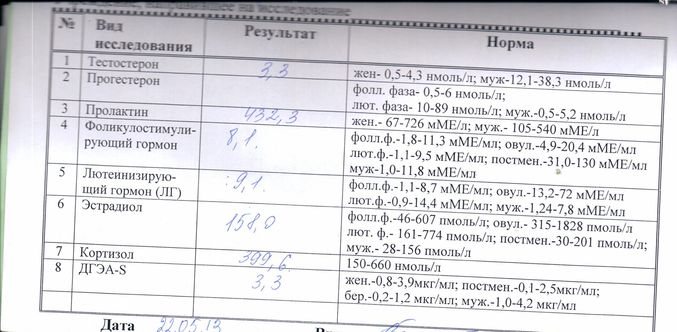 учреждение, направившее на исследование
№ Вид исследования Результат Норма
1 Тестостерон 3,3 жен- 0,5-4,3 нмоль/л; муж-12,1-38,3 нмоль/л
2 Прогестерон фолл. фаза- 0,5-6 нмоль/л;
лют. фаза- 10-89 нмоль/л; муж.-0,5-5,2 нмоль/л
3 Пролактин 432,3 жен.- 67-726 мМЕ/л; муж.- 105-540 мМЕ/л
4 Фоликулостимули- 8,1. фолл.ф.-1,8-11,3 мМЕ/мл; овул.-4,9-20,4 мМЕ/мл
рующий гормон лют.ф.-1,1-9,5 мМЕ/мл; постмен.-31,0-130 мМЕ/мл
муж-1,0-11,8 мМЕ/мл
5 Лютеинизирую- 9,1. фолл.ф.-1,1-8,7 мМЕ/л; овул.-13,2-72 мМЕ/л
щий гормон (ЛГ) лют.ф.-0,9-14,4 мМЕ/л; муж.-1,24-7,8 мМЕ/л
6 Эстрадиол 158,0 фолл.ф.-46-607 пмоль/л; овул.- 315-1828 пмоль/л
лют. ф.- 161-774 пмоль/л; постмен.-30-201 пмоль/л;
муж.- 28-156 пмоль/л
7 Кортизол 399,6. 150-660 нмоль/л
8 ДГЭА-S 3,3 жен.-0,8-3,9мкг/мл; постмен.-0,1-2,5мкг/мл;
бер.-0,2-1,2 мкг/мл; муж.-1,0-4,2 мкг/мл
Дата 22.05.13